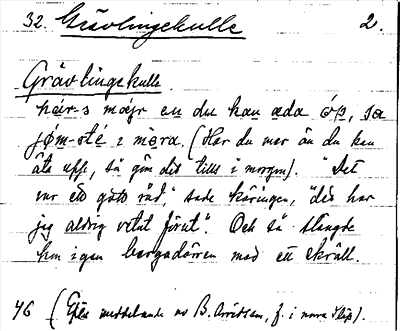 32. Grävlingekulle 2.
Grävlingekulle
här-s majr en du kan æda óp, sa
jøm-stè i mòra. (Har du mer än du kan
äta upp, så göm det tills i morgon). "Det
var ett gott råd," sade käringen, "det har
jag aldrig vetat förut". Och så stängde
hon igen bergsdörren med ett skräll.
46 (Efter meddelande av B. Arvidsson, f. i norra Skrp).